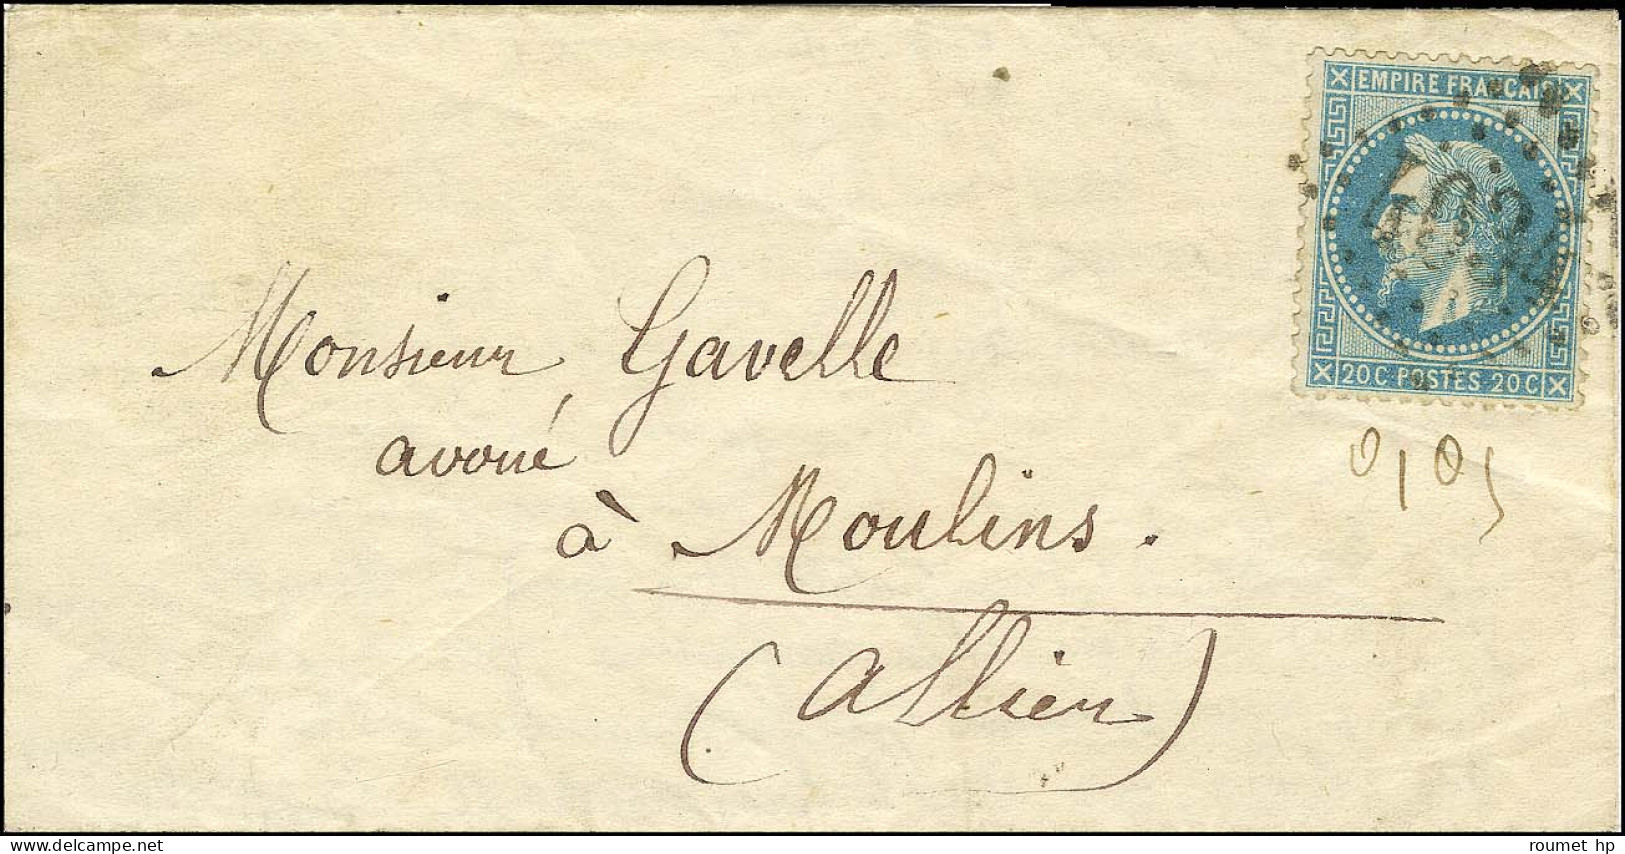 EMPIRE FRANCAIS
20C POSTES 20C
Monsieur Gavelle
avoué
à Moulins.
(Allier)
delcampe.net
roumet hp